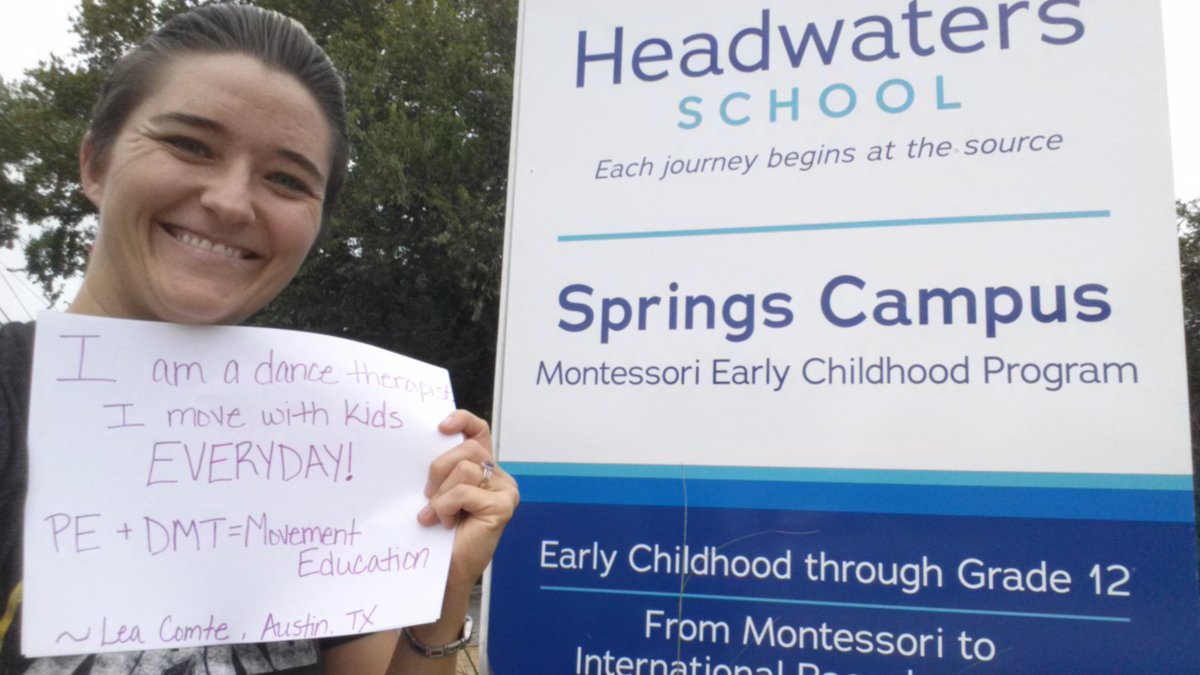 I am a dance therapist
I move with kids
EVERYDAY!
PE + DMT = Movement
Education
~ Lea Comte, Austin, TX
Headwaters
SCHOOL
Each journey begins at the source
Springs Campus
Montessori Early Childhood Program
Early Childhood through Grade 12
From Montessori to
International